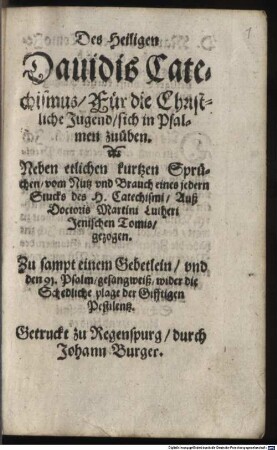 Des Heiligen
Dauidis Cate-
chismus/ Für die Christ-
liche Jugend/ sich in Psal-
men zuüben.
Neben etlichen kurtzen Sprü-
chen/ vom Nutz vnd Brauch eines jedern
Stucks des H. Catechismi/ Auß
Doctoris Martini Lutheri
Jenischen Tomis/
gezogen.
Zu sampt einem Gebetlein/ vnd
den 91. Psalm/ gesangweiß/ wider die
Schedliche plage der Gifftigen
Pestilentz.
Getruckt zu Regenspurg/ durch
Johann Burger.